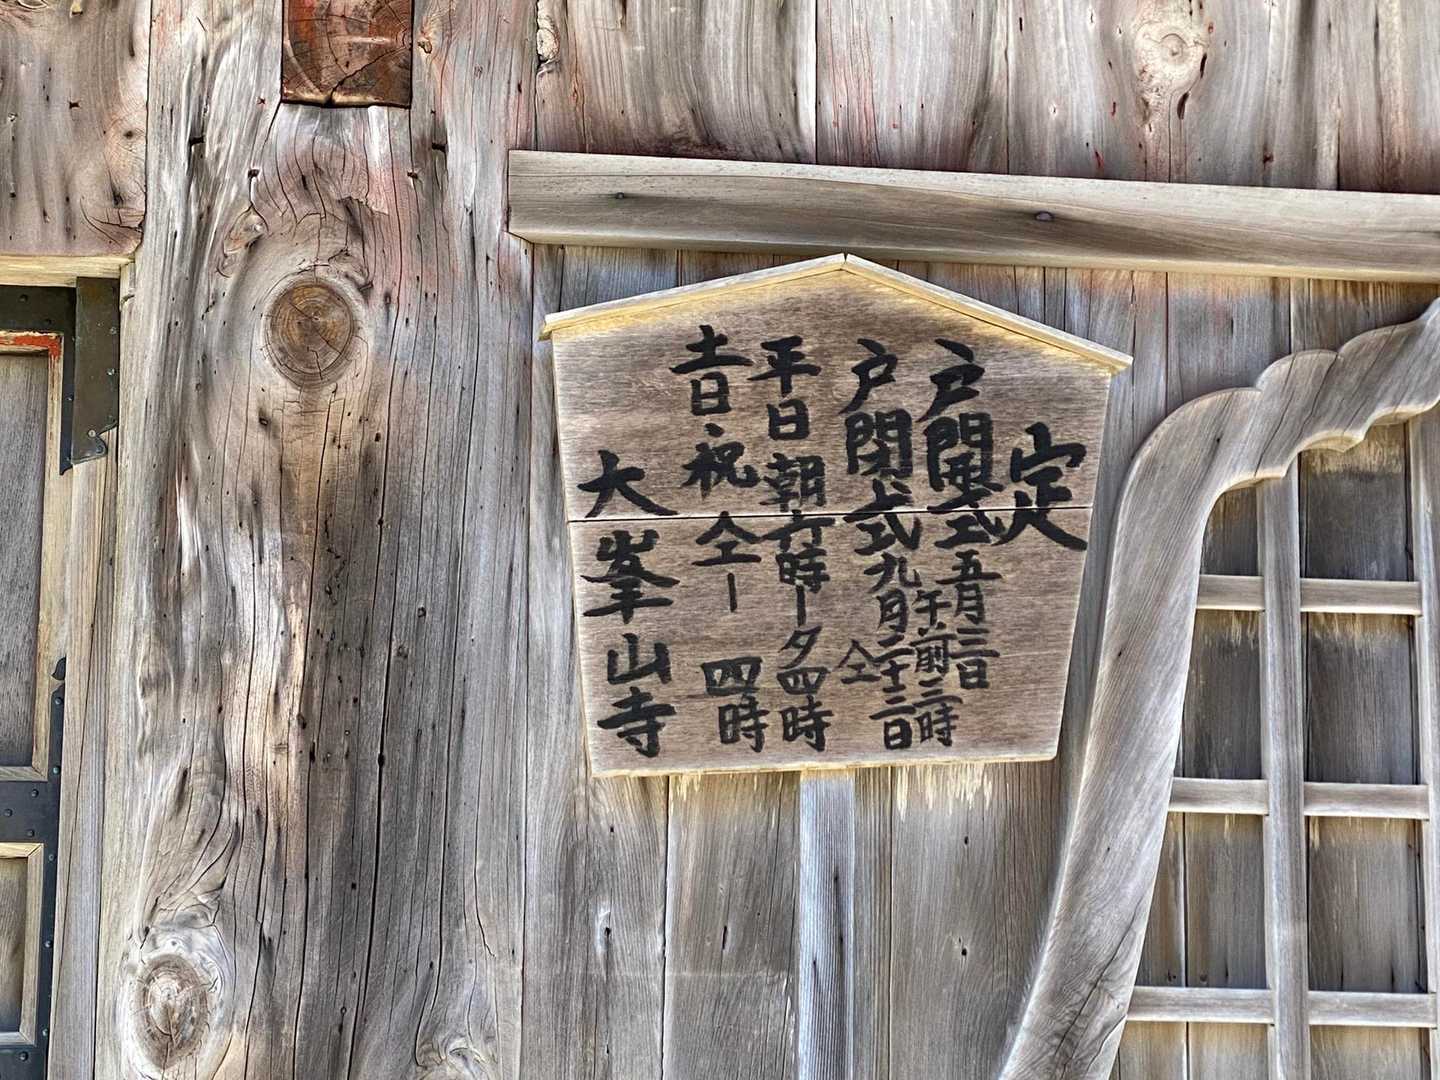 定
戸開式五月三日
午前三時
戸閉式九月二十三日
仝
平日朝六時ー夕四時
土日祝仝ー四時
大峯山寺